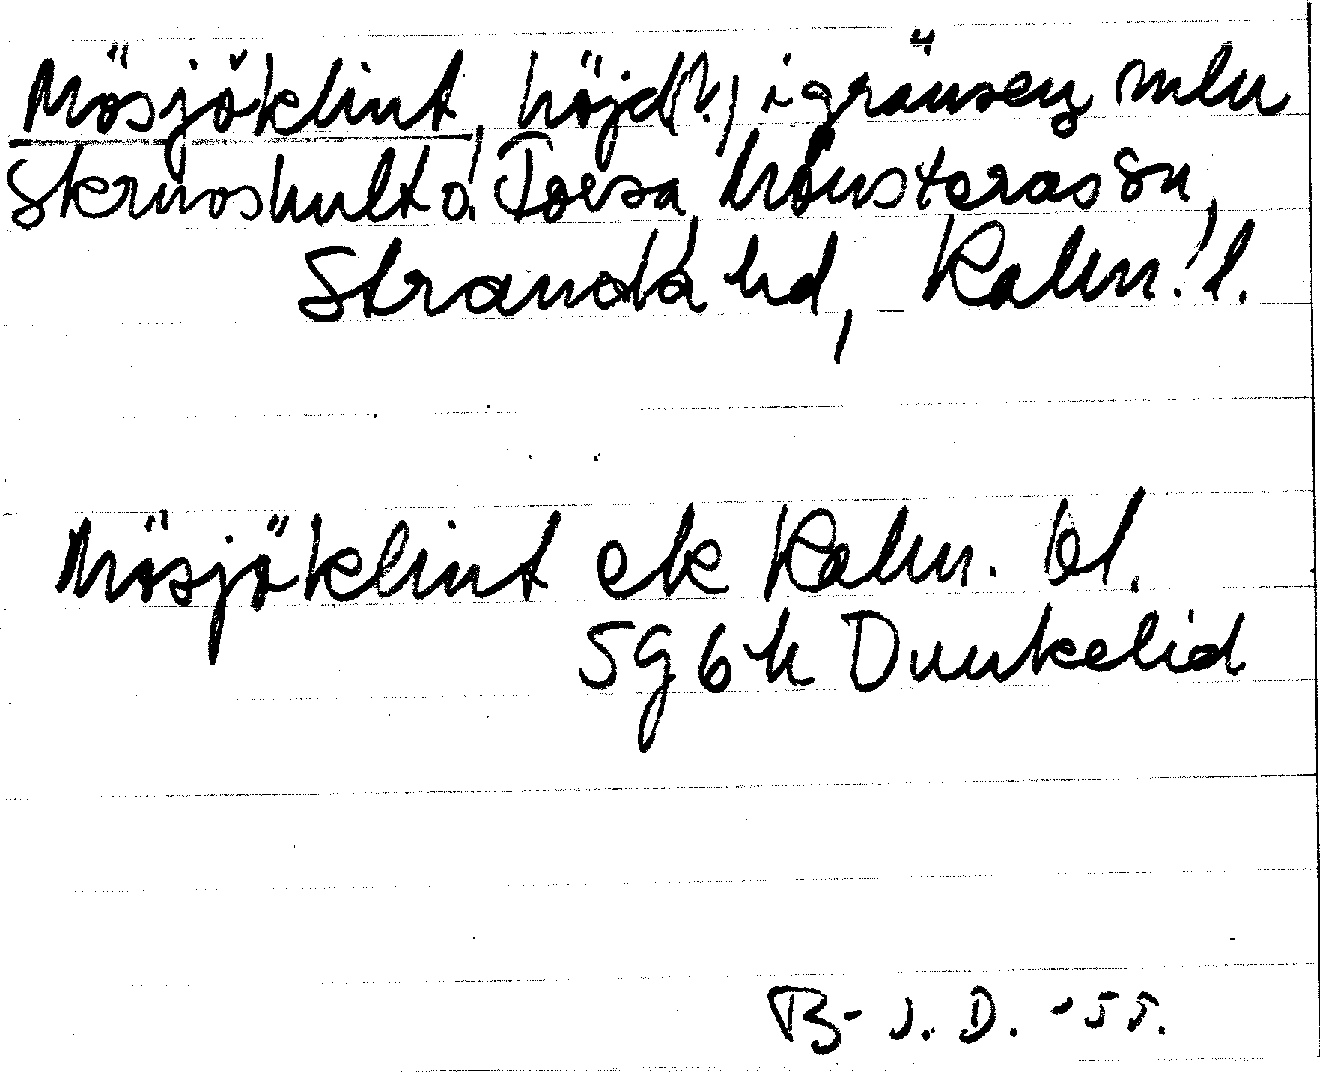 Mösjöklint, höjd(?) i gränsen mln
Skruvshult o. Torsa, Mönsterås sn,
Stranda hd, Kalm. l.
Mösjöklint ek Kalm. bl.
5g6h Dunkelid
B-J.D. -55.